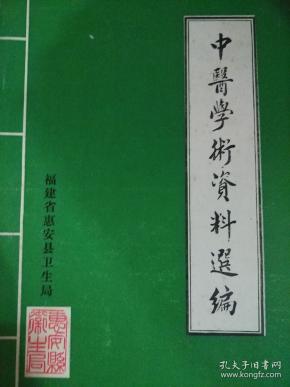 中醫學術資料選編
福建省惠安县卫生局
惠安縣衛生局
孔夫子旧书网